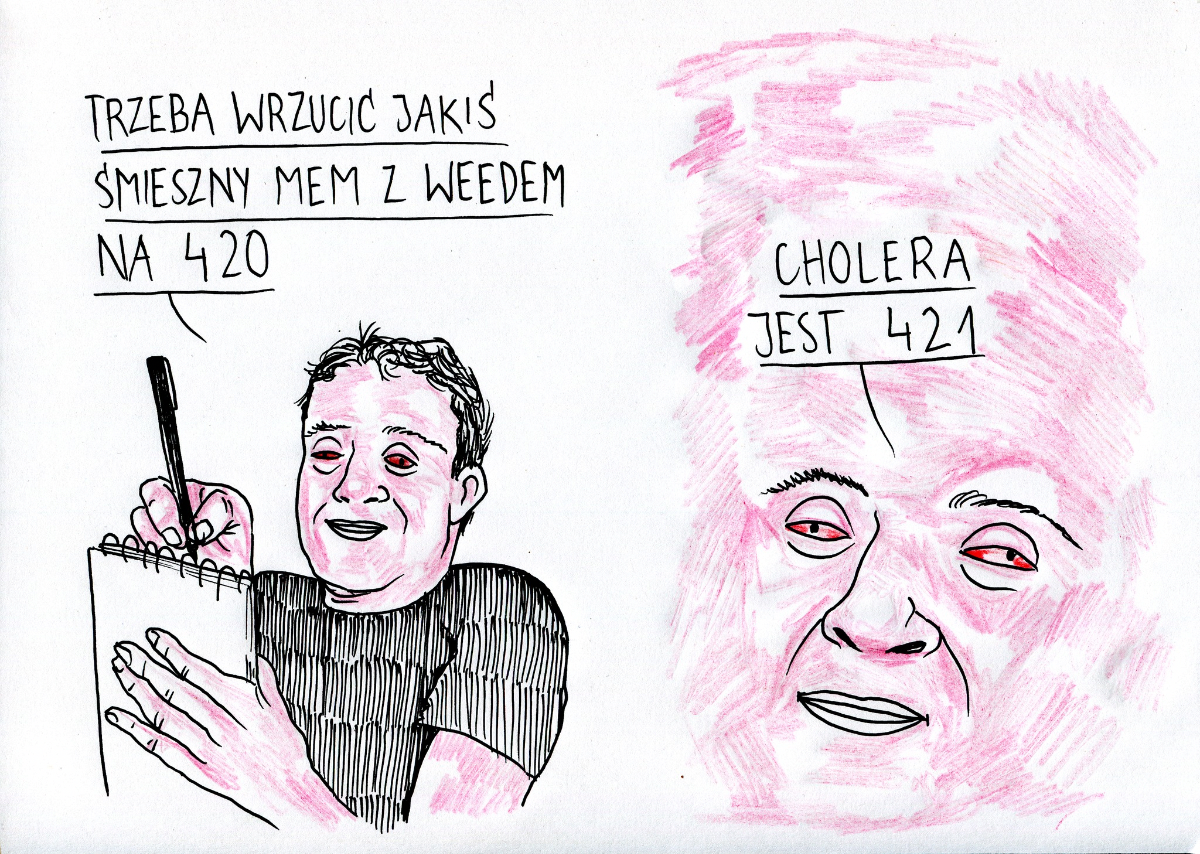 TRZEBA WRZUCIĆ JAKIŚ
ŚMIESZNY MEM Z WEEDEM
NA 420
CHOLERA
JEST 421